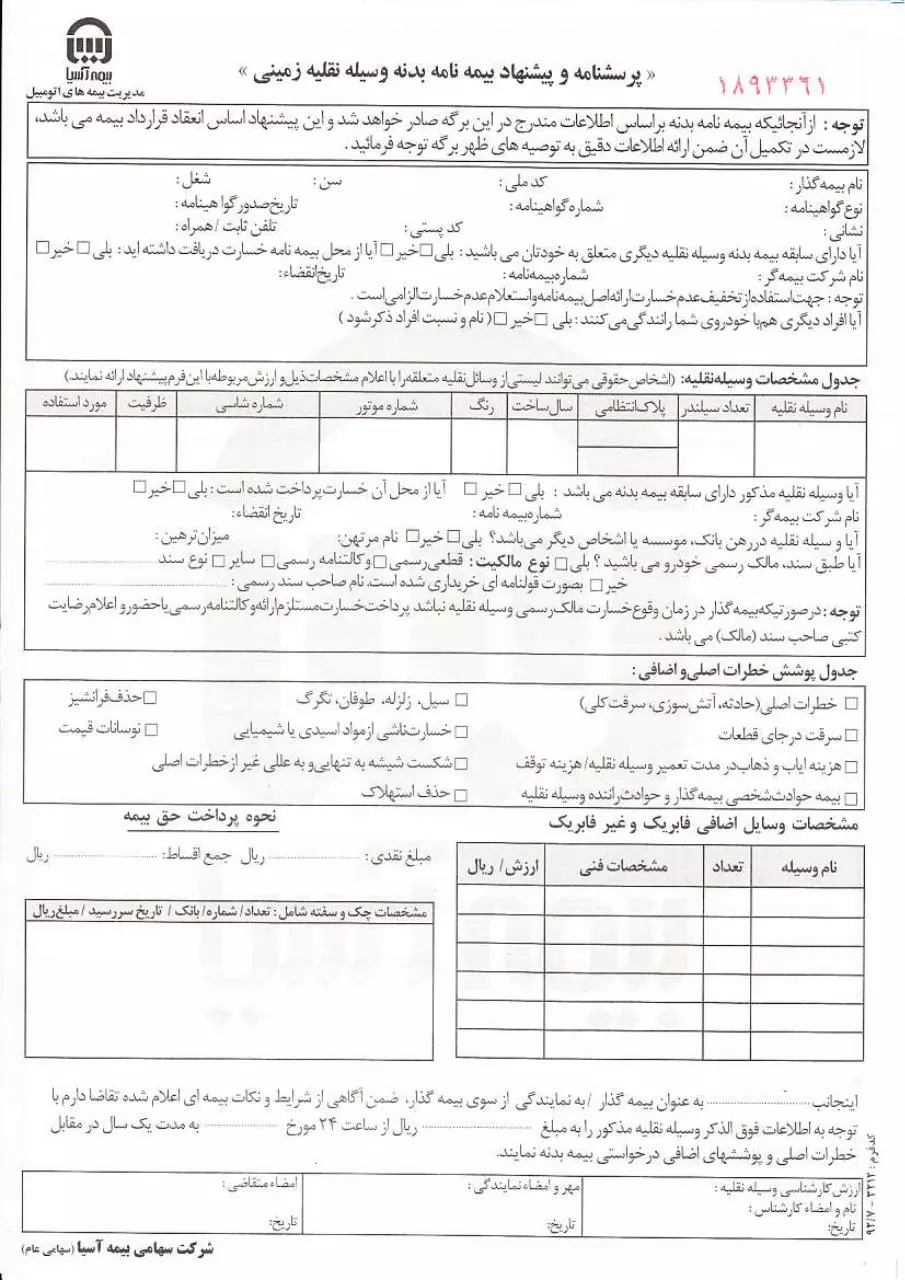 بیمه آسیا
مدیریت بیمه های اتومبیل
« پرسشنامه و پیشنهاد بیمه نامه بدنه وسیله نقلیه زمینی »
۱۸۹۳۳۶۱
توجه : ازآنجائیکه بیمه نامه بدنه براساس اطلاعات مندرج در این برگه صادر خواهد شد و این پیشنهاد اساس انعقاد قرارداد بیمه می باشد،
لازمست در تکمیل آن ضمن ارائه اطلاعات دقیق به توصیه های ظهر برگه توجه فرمائید.
نام بیمه گذار: کد ملی: سن: شغل:
نوع گواهینامه: شماره گواهینامه: تاریخ صدور گواهینامه:
نشانی: کد پستی: تلفن ثابت / همراه:
آیا دارای سابقه بیمه بدنه وسیله نقلیه دیگری متعلق به خودتان می باشید: بلی □ خیر □ آیا از محل بیمه نامه خسارت دریافت داشته اید: بلی □ خیر □
نام شرکت بیمه گر: شماره بیمه نامه: تاریخ انقضاء:
توجه : جهت استفاده از تخفیف عدم خسارت ارائه اصل بیمه نامه و استعلام عدم خسارت الزامی است.
آیا افراد دیگری هم با خودروی شما رانندگی می کنند: بلی □ خیر □ ( نام و نسبت افراد ذکر شود )
جدول مشخصات وسیله نقلیه: (اشخاص حقوقی می توانند لیستی از وسائل نقلیه متعلقه را با اعلام مشخصات ذیل و ارزش مربوطه با این فرم پیشنهاد ارائه نمایند.)
نام وسیله نقلیه تعداد سیلندر پلاک انتظامی سال ساخت رنگ شماره موتور شماره شاسی ظرفیت مورد استفاده
آیا وسیله نقلیه مذکور دارای سابقه بیمه بدنه می باشد : بلی □ خیر □ آیا از محل آن خسارت پرداخت شده است : بلی □ خیر □
نام شرکت بیمه گر: شماره بیمه نامه: تاریخ انقضاء:
آیا و سیله نقلیه در رهن بانک، موسسه یا اشخاص دیگر می باشد؟ بلی □ خیر □ نام مرتهن: میزان ترهین:
آیا طبق سند، مالک رسمی خودرو می باشید ؟ بلی □ نوع مالکیت: قطعی رسمی □ وکالتنامه رسمی □ سایر □ نوع سند
خیر □ بصورت قولنامه ای خریداری شده است. نام صاحب سند رسمی :
توجه : درصورتیکه بیمه گذار در زمان وقوع خسارت مالک رسمی وسیله نقلیه نباشد پرداخت خسارت مستلزم ارائه وکالتنامه رسمی یا حضور و اعلام رضایت
کتبی صاحب سند (مالک) می باشد.
جدول پوشش خطرات اصلی و اضافی:
□ خطرات اصلی (حادثه، آتش سوزی، سرقت کلی) □ سیل، زلزله، طوفان، تگرگ □ حذف فرانشیز
□ سرقت درجای قطعات □ خسارت ناشی از مواد اسیدی یا شیمیایی □ نوسانات قیمت
□ هزینه ایاب و ذهاب در مدت تعمیر وسیله نقلیه/ هزینه توقف □ شکست شیشه به تنهایی و به عللی غیر از خطرات اصلی
□ بیمه حوادث شخصی بیمه گذار و حوادث راننده وسیله نقلیه □ حذف استهلاک
مشخصات وسایل اضافی فابریک و غیر فابریک
نام وسیله تعداد مشخصات فنی ارزش/ ریال
نحوه پرداخت حق بیمه
مبلغ نقدی: ریال جمع اقساط: ریال
مشخصات چک و سفته شامل: تعداد/ شماره/ بانک / تاریخ سررسید / مبلغ ریال
اینجانب به عنوان بیمه گذار /به نمایندگی از سوی بیمه گذار، ضمن آگاهی از شرایط و نکات بیمه ای اعلام شده تقاضا دارم با
توجه به اطلاعات فوق الذکر وسیله نقلیه مذکور را به مبلغ ریال از ساعت ۲۴ مورخ به مدت یک سال در مقابل
خطرات اصلی و پوششهای اضافی درخواستی بیمه بدنه نمایند.
ارزش کارشناسی وسیله نقلیه : مهر و امضاء نمایندگی : امضاء متقاضی :
نام و امضاء کارشناس :
تاریخ: تاریخ: تاریخ:
کد فرم : ۳۳۱۲ - ۹۲/۷
شرکت سهامی بیمه آسیا (سهامی عام)